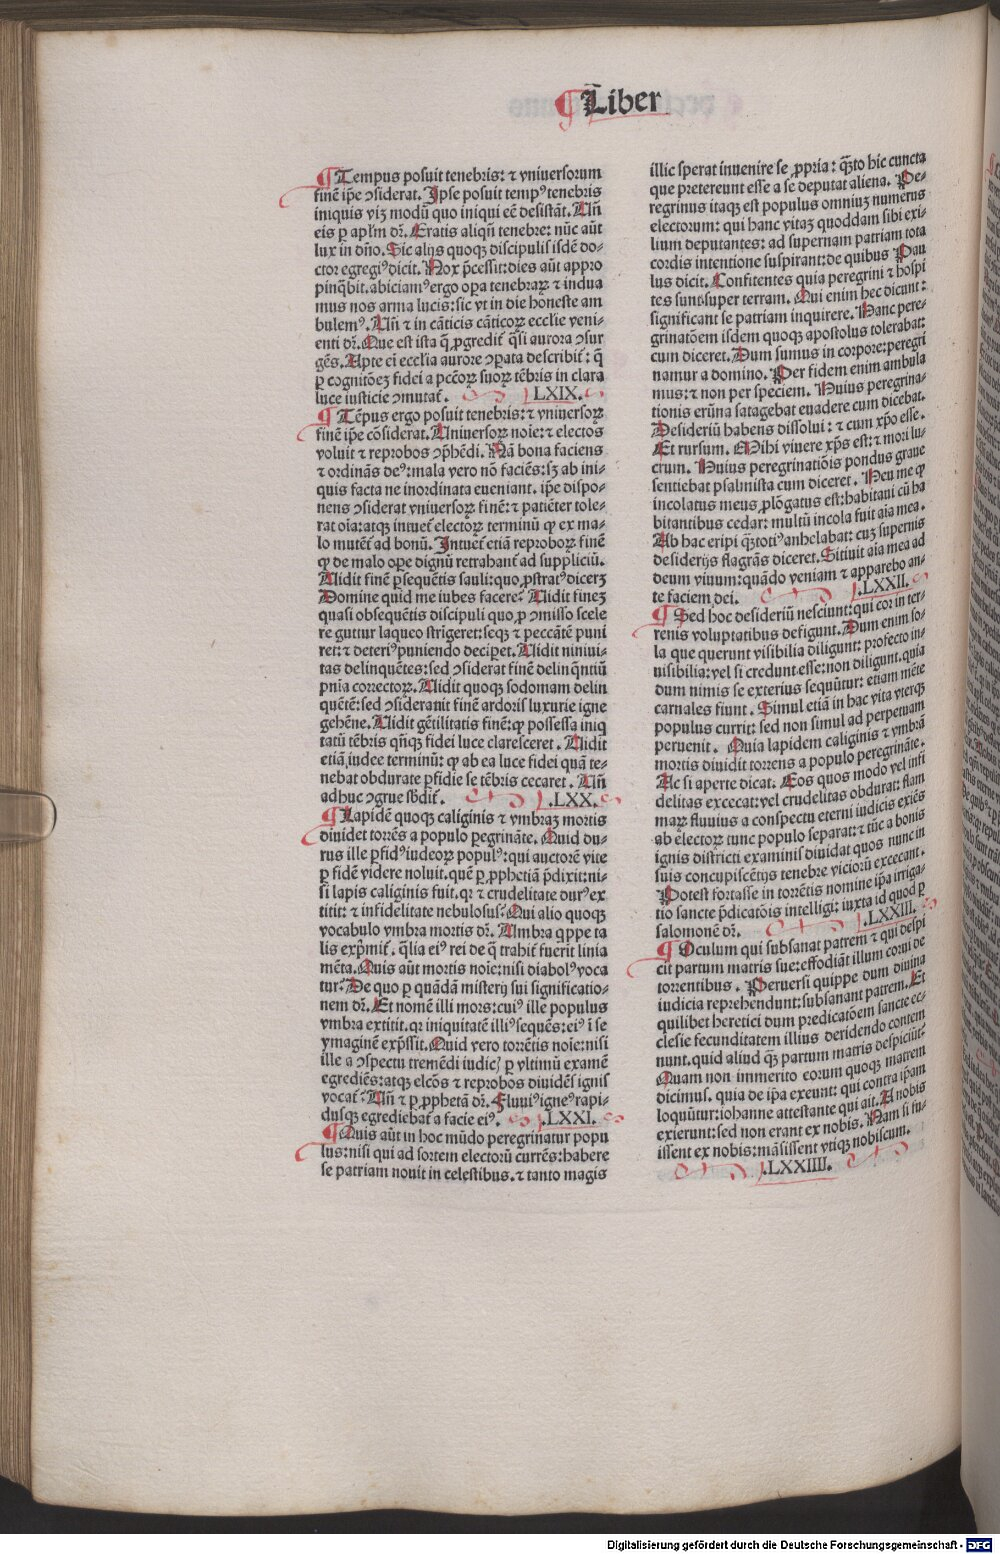 Liber
Tempus posuit tenebris: ⁊ vniuersorum
finē ip̄e ↄsiderat. Ipse posuit tempꝰ tenebris
iniquis viꝫ modū quo iniqui eē desistāt. Uñ
eis ꝑ aplm̄ dr̄. Eratis aliqñ tenebre: nūc aūt
lux in dño. Sic alijs quoqꝫ discipulis isdē do-
ctor egregiꝰ dicit. Nox p̄cessit: dies aūt appro
pinq̄bit. abiciamꝰ ergo oꝑa tenebraꝝ ⁊ indua
mus nos arma lucis: sic vt in die honeste am
bulemꝰ. Uñ ⁊ in cāticis cāticoꝝ ecclie veni-
enti dr̄. Que est ista q̄ ꝓgredit̄ q̄si aurora ↄsur
gēs. Apte em̄ ecclia aurore ↄꝑata describit̄: q̄
ꝑ cognitōeꝫ fidei a pctōꝝ suoꝝ tēbris in clara
luce iusticie ↄmutat̄. .LXIX.
Tēpus ergo posuit tenebris: ⁊ vniuersoꝝ
finē ip̄e cōsiderat. Uniuersoꝝ noie: ⁊ electos
voluit ⁊ reprobos ↄp̄hēdi. Nā bona faciens
⁊ ordināns deꝰ: mala vero nō faciēs: sꝫ ab ini-
quis facta ne inordinata eueniant. ip̄e dispo-
nens ↄsiderat vniuersoꝝ finē: ⁊ patiēter tole-
rat oia: atqꝫ intuet̄ electoꝝ terminū ꝙ ex ma-
lo mutēt̄ ad bonū. Intuet̄ etiā reproboꝝ finē
ꝙ de malo oꝑe dignū retrahant̄ ad suppliciū.
Uidit finē ꝑsequētis sauli: quo ꝓstratꝰ dicerꝫ
Domine quid me iubes facere? Uidit fineꝫ
quasi obsequētis discipuli quo ꝓ ↄmisso scele
re guttur laqueo strigeret: seqꝫ ⁊ peccātē puni
ret: ⁊ deteriꝰ puniendo deciꝑet. Uidit niniui-
tas delinquētes: sed ↄsiderat finē delinq̄ntiū
pn̄ia correctoꝝ. Uidit quoqꝫ sodomam delin
quētē: sed ↄsiderauit finē ardoris luxurie igne
gehēne. Uidit gētilitatis finē: ꝙ possessa iniq
tatū tēbris qñqꝫ fidei luce claresceret. Uidit
etiā iudee terminū: ꝙ ab ea luce fidei quā te-
nebat obdurate ꝑfidie se tēbris cecaret. Uñ
adhuc ↄgrue sb̄dit̄. .LXX.
Lapidē quoqꝫ caliginis ⁊ vmbraꝫ mortis
diuidet torrēs a populo ꝑegrināte. Quid du-
rus ille ꝑfidꝰ iudeoꝝ populꝰ: qui auctorē vite
ꝑ fidē videre noluit. quē ꝑ ꝓphetiā p̄dixit: ni-
si lapis caliginis fuit. qr ⁊ crudelitate durꝰ ex
titit: ⁊ infidelitate nebulosus? Qui alio quoqꝫ
vocabulo vmbra mortis dr̄. Umbra q̄ppe ta
lis exp̄mit̄. q̄lia eiꝰ rei de q̄ trahit̄ fuerit linia
mēta. Quis aūt mortis noie: nisi diabolꝰ voca
tur? De quo ꝑ quādā misterij sui significatio-
nem dr̄. Et nomē illi mors: cuiꝰ ille populus
vmbra extitit. qr iniquitatē illiꝰ sequēs: eiꝰ ī se
ymaginē exp̄ssit. Quid vero torrētis noie: nisi
ille a ↄspectu tremēdi iudicꝭ ꝑ vltimū examē
egrediēs: atqꝫ elcōs ⁊ reprobos diuidēs ignis
vocat̄? Uñ ⁊ ꝑ ꝓphetā dr̄. Fluuiꝰ igneꝰ rapi-
dusqꝫ egrediebat̄ a facie eiꝰ. .LXXI.
Quis aūt in hoc mūdo peregrinatur popu
lus: nisi qui ad sortem electorū currēs: habere
se patriam nouit in celestibus. ⁊ tanto magis
illic sperat inuenire se ꝓpria: q̄ꝫto hic cuncta
que pretereunt esse a se deputat aliena. Pe-
regrinus itaqꝫ est populus omniuꝫ numerus
electorum: qui hanc vitaꝫ quoddam sibi exi-
lium deputantes: ad supernam patriam tota
cordis intentione suspirant: de quibus Pau
lus dicit. Confitentes quia peregrini ⁊ hospi
tes sunt super terram. Qui enim hec dicunt:
significant se patriam inquirere. Hanc pere-
grinatōem isdem quoqꝫ apostolus tolerabat:
cum diceret. Dum sumus in corpore: peregri
namur a domino. Per fidem enim ambula
mus: ⁊ non per speciem. Huius peregrina-
tionis erūna satagebat euadere cum dicebat.
Desideriū habens dissolui: ⁊ cum xp̄o esse.
Et rursum. Mihi viuere xp̄s est: ⁊ mori lu-
crum. Huius peregrinatiōis pondus graue
sentiebat psalmista cum diceret. Heu me ꝙ
incolatus meus ꝓlōgatus est: habitaui cū ha
bitantibus cedar: multū incola fuit aia mea.
Ab hac eripi q̄ꝫtotiꝰ anhelabat: cuꝫ supernis
desiderijs flagrās diceret. Sitiuit aia mea ad
deum viuum: quādo veniam ⁊ apparebo an-
te faciem dei. .LXXII.
Sed hoc desideriū nesciunt: qui cor in ter-
renis voluptatibus defigunt. Dum enim so-
la que querunt visibilia diligunt: profecto in-
uisibilia: vel si credunt esse: non diligunt. quia
dum nimis se exterius sequūtur: etiam mēte
carnales fiunt. Simul etiā in hac vita vterqꝫ
populus currit: sed non simul ad perpetuam
peruenit. Quia lapidem caliginis ⁊ vmbrā
mortis diuidit torrens a populo peregrināte.
Ac si aperte dicat. Eos quos modo vel infi
delitas excecat: vel crudelitas obdurat: flam
maꝝ fluuius a conspectu eterni iudicis exiēs
ab electoꝝ tunc populo separat: ⁊ tūc a bonis
ignis districti examinis diuidat quos nunc in
suis concupiscētijs tenebre vicioꝝ excecant.
Potest fortasse in torrētis nomine ip̄a irriga-
tio sancte p̄dicatōis intelligi: iuxta id quod ꝑ
salomonē dr̄. .LXXIII.
Oculum qui subsanat patrem ⁊ qui despi
cit partum matris sue: effodiāt illum corui de
torrentibus. Peruersi quippe dum diuina
iudicia reprehendunt: subsanant patrem. Et
quilibet heretici dum predicatōem sancte ec-
clesie fecunditatem illius deridendo contem
nunt. quid aliud q̄ꝫ partum matris despiciūt?
Quam non immerito eorum quoqꝫ matrem
dicimus. quia de ipa exeunt: qui contra ip̄am
loquūtur: iohanne attestante qui ait. A nobis
exierunt: sed non erant ex nobis. Nam si fu-
issent ex nobis: māsissent vtiqꝫ nobiscum.
.LXXIIII.
Digitalisierung gefördert durch die Deutsche Forschungsgemeinschaft - DFG